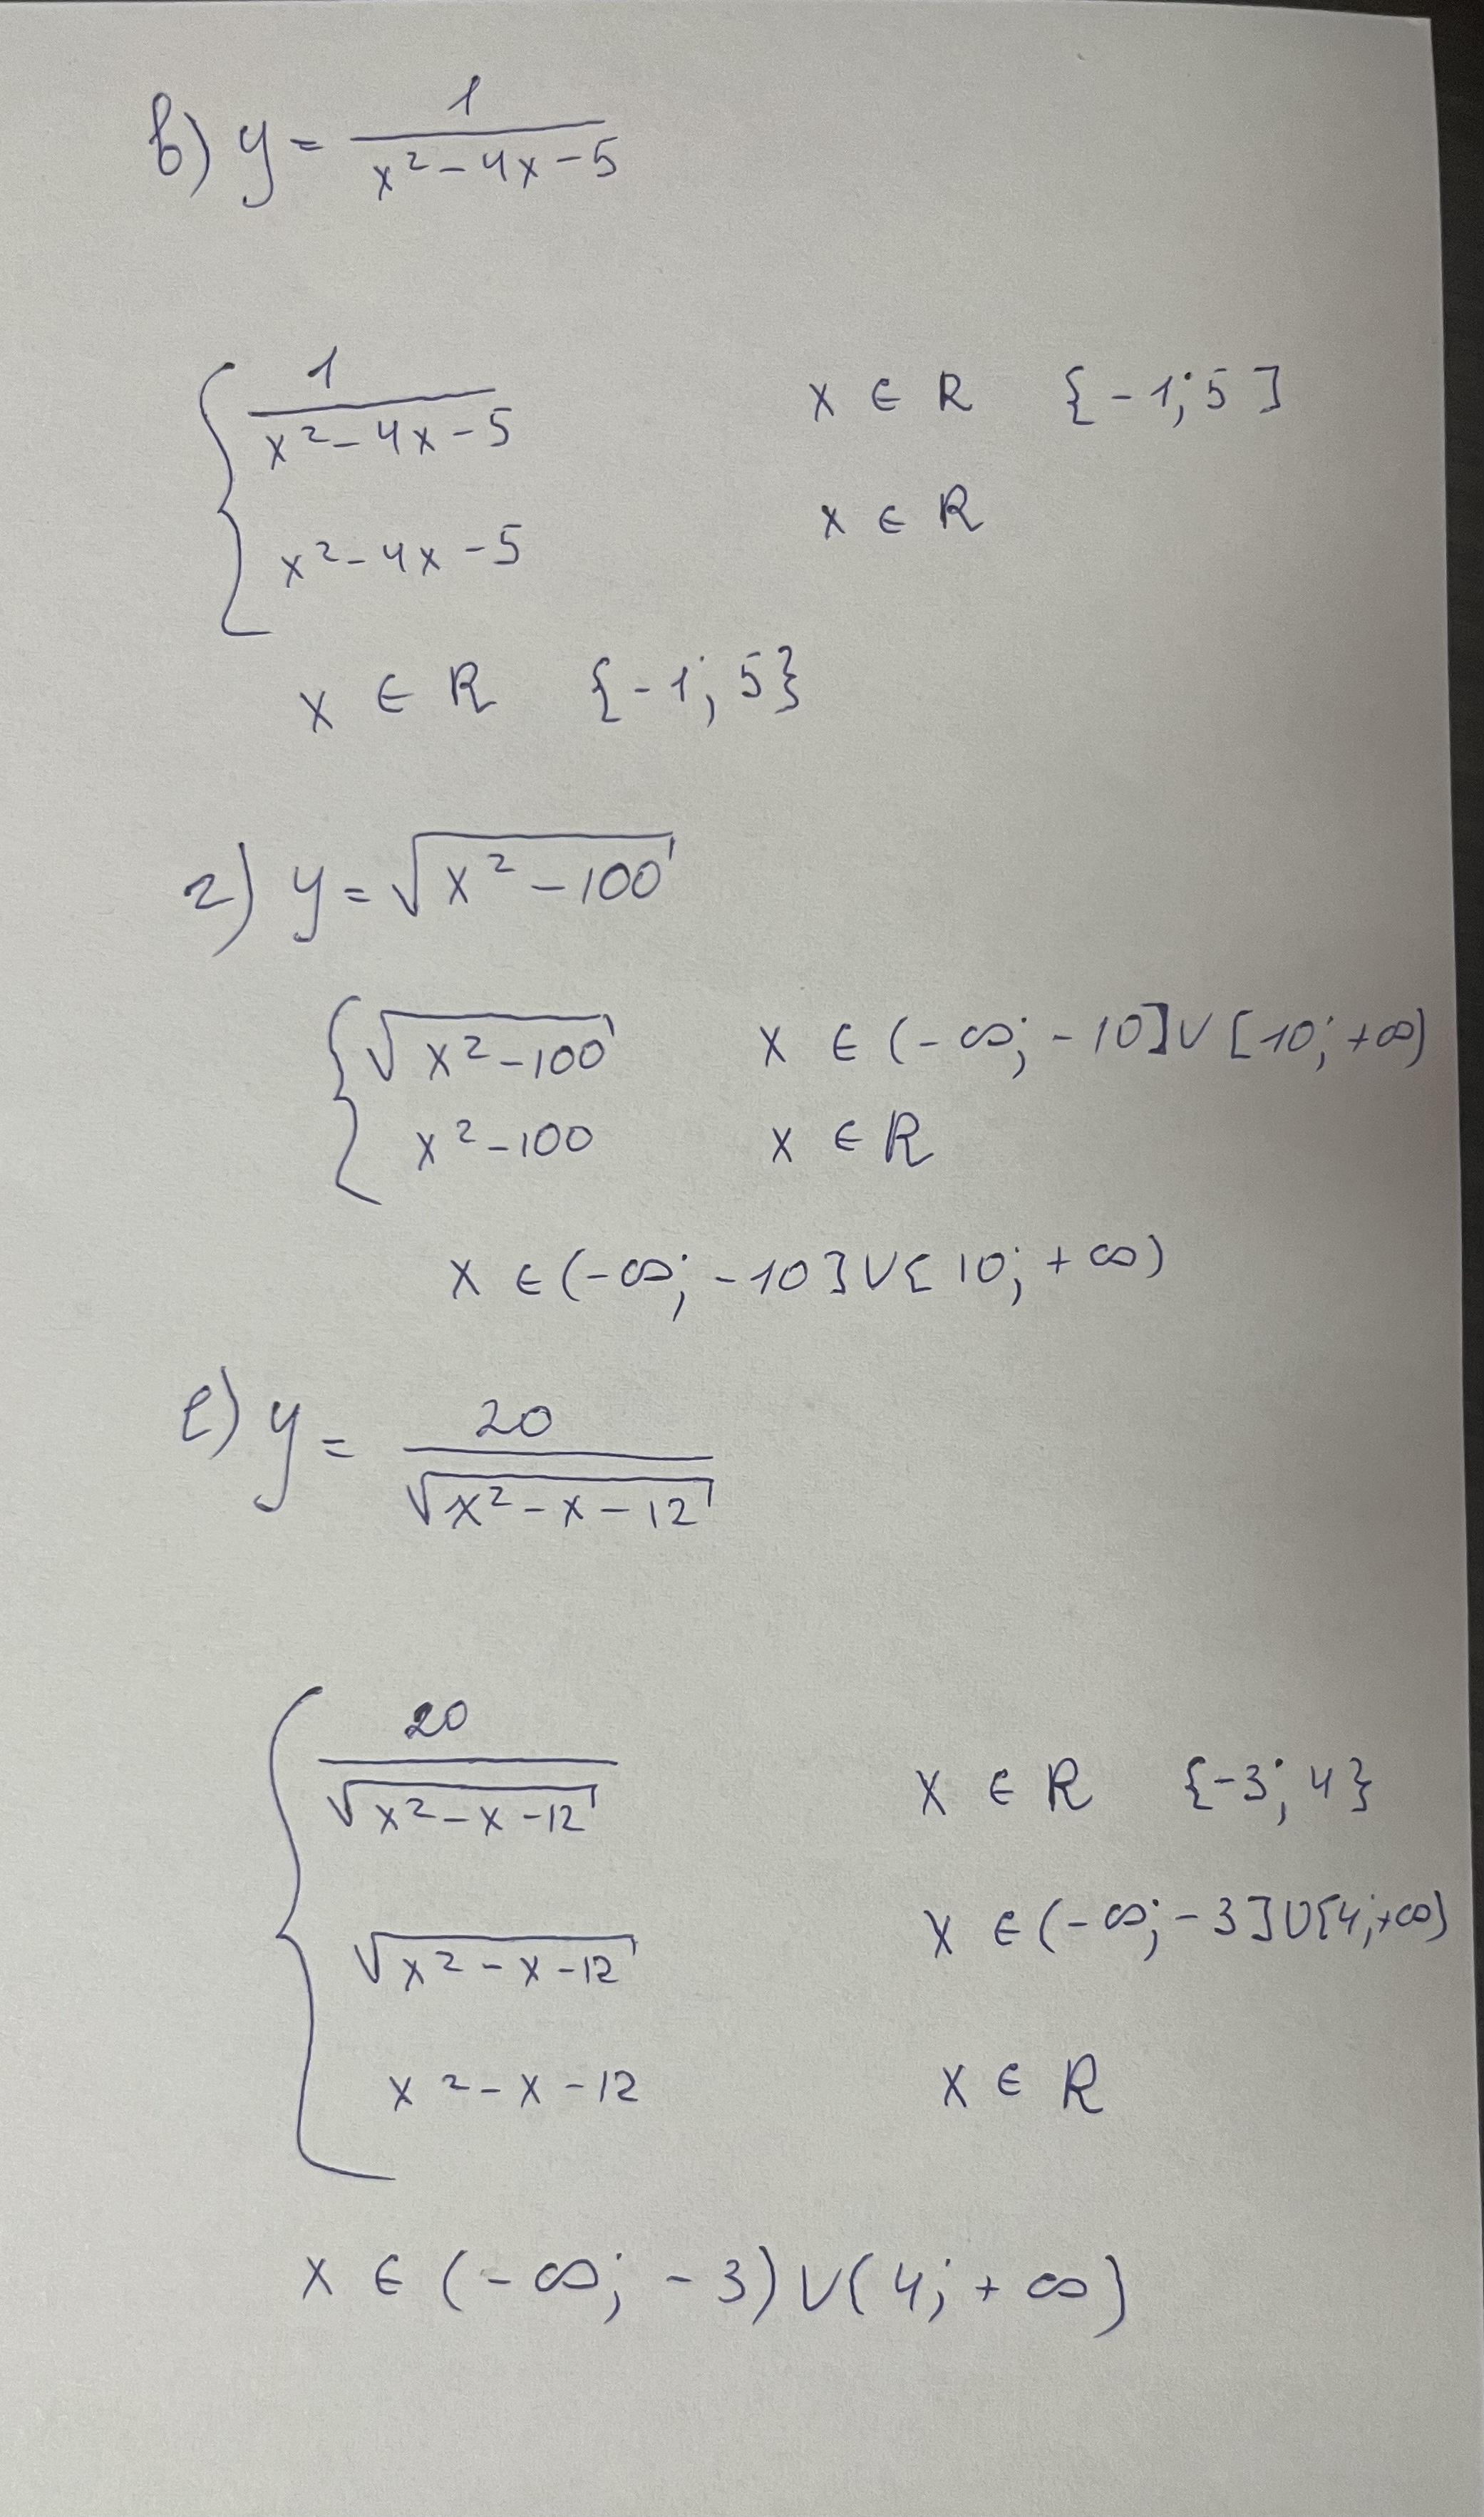 в) y = 1/(x² - 4x - 5)
{ 1/(x² - 4x - 5) x ∈ R {-1; 5]
x² - 4x - 5 x ∈ R
x ∈ R {-1; 5}
г) y = √(x² - 100)
{ √(x² - 100) x ∈ (-∞; -10] ∪ [10; +∞)
x² - 100 x ∈ R
x ∈ (-∞; -10] ∪ [10; +∞)
е) y = 20/√(x² - x - 12)
{ 20/√(x² - x - 12) x ∈ R {-3; 4}
√(x² - x - 12) x ∈ (-∞; -3] ∪ [4; +∞)
x² - x - 12 x ∈ R
x ∈ (-∞; -3) ∪ (4; +∞)